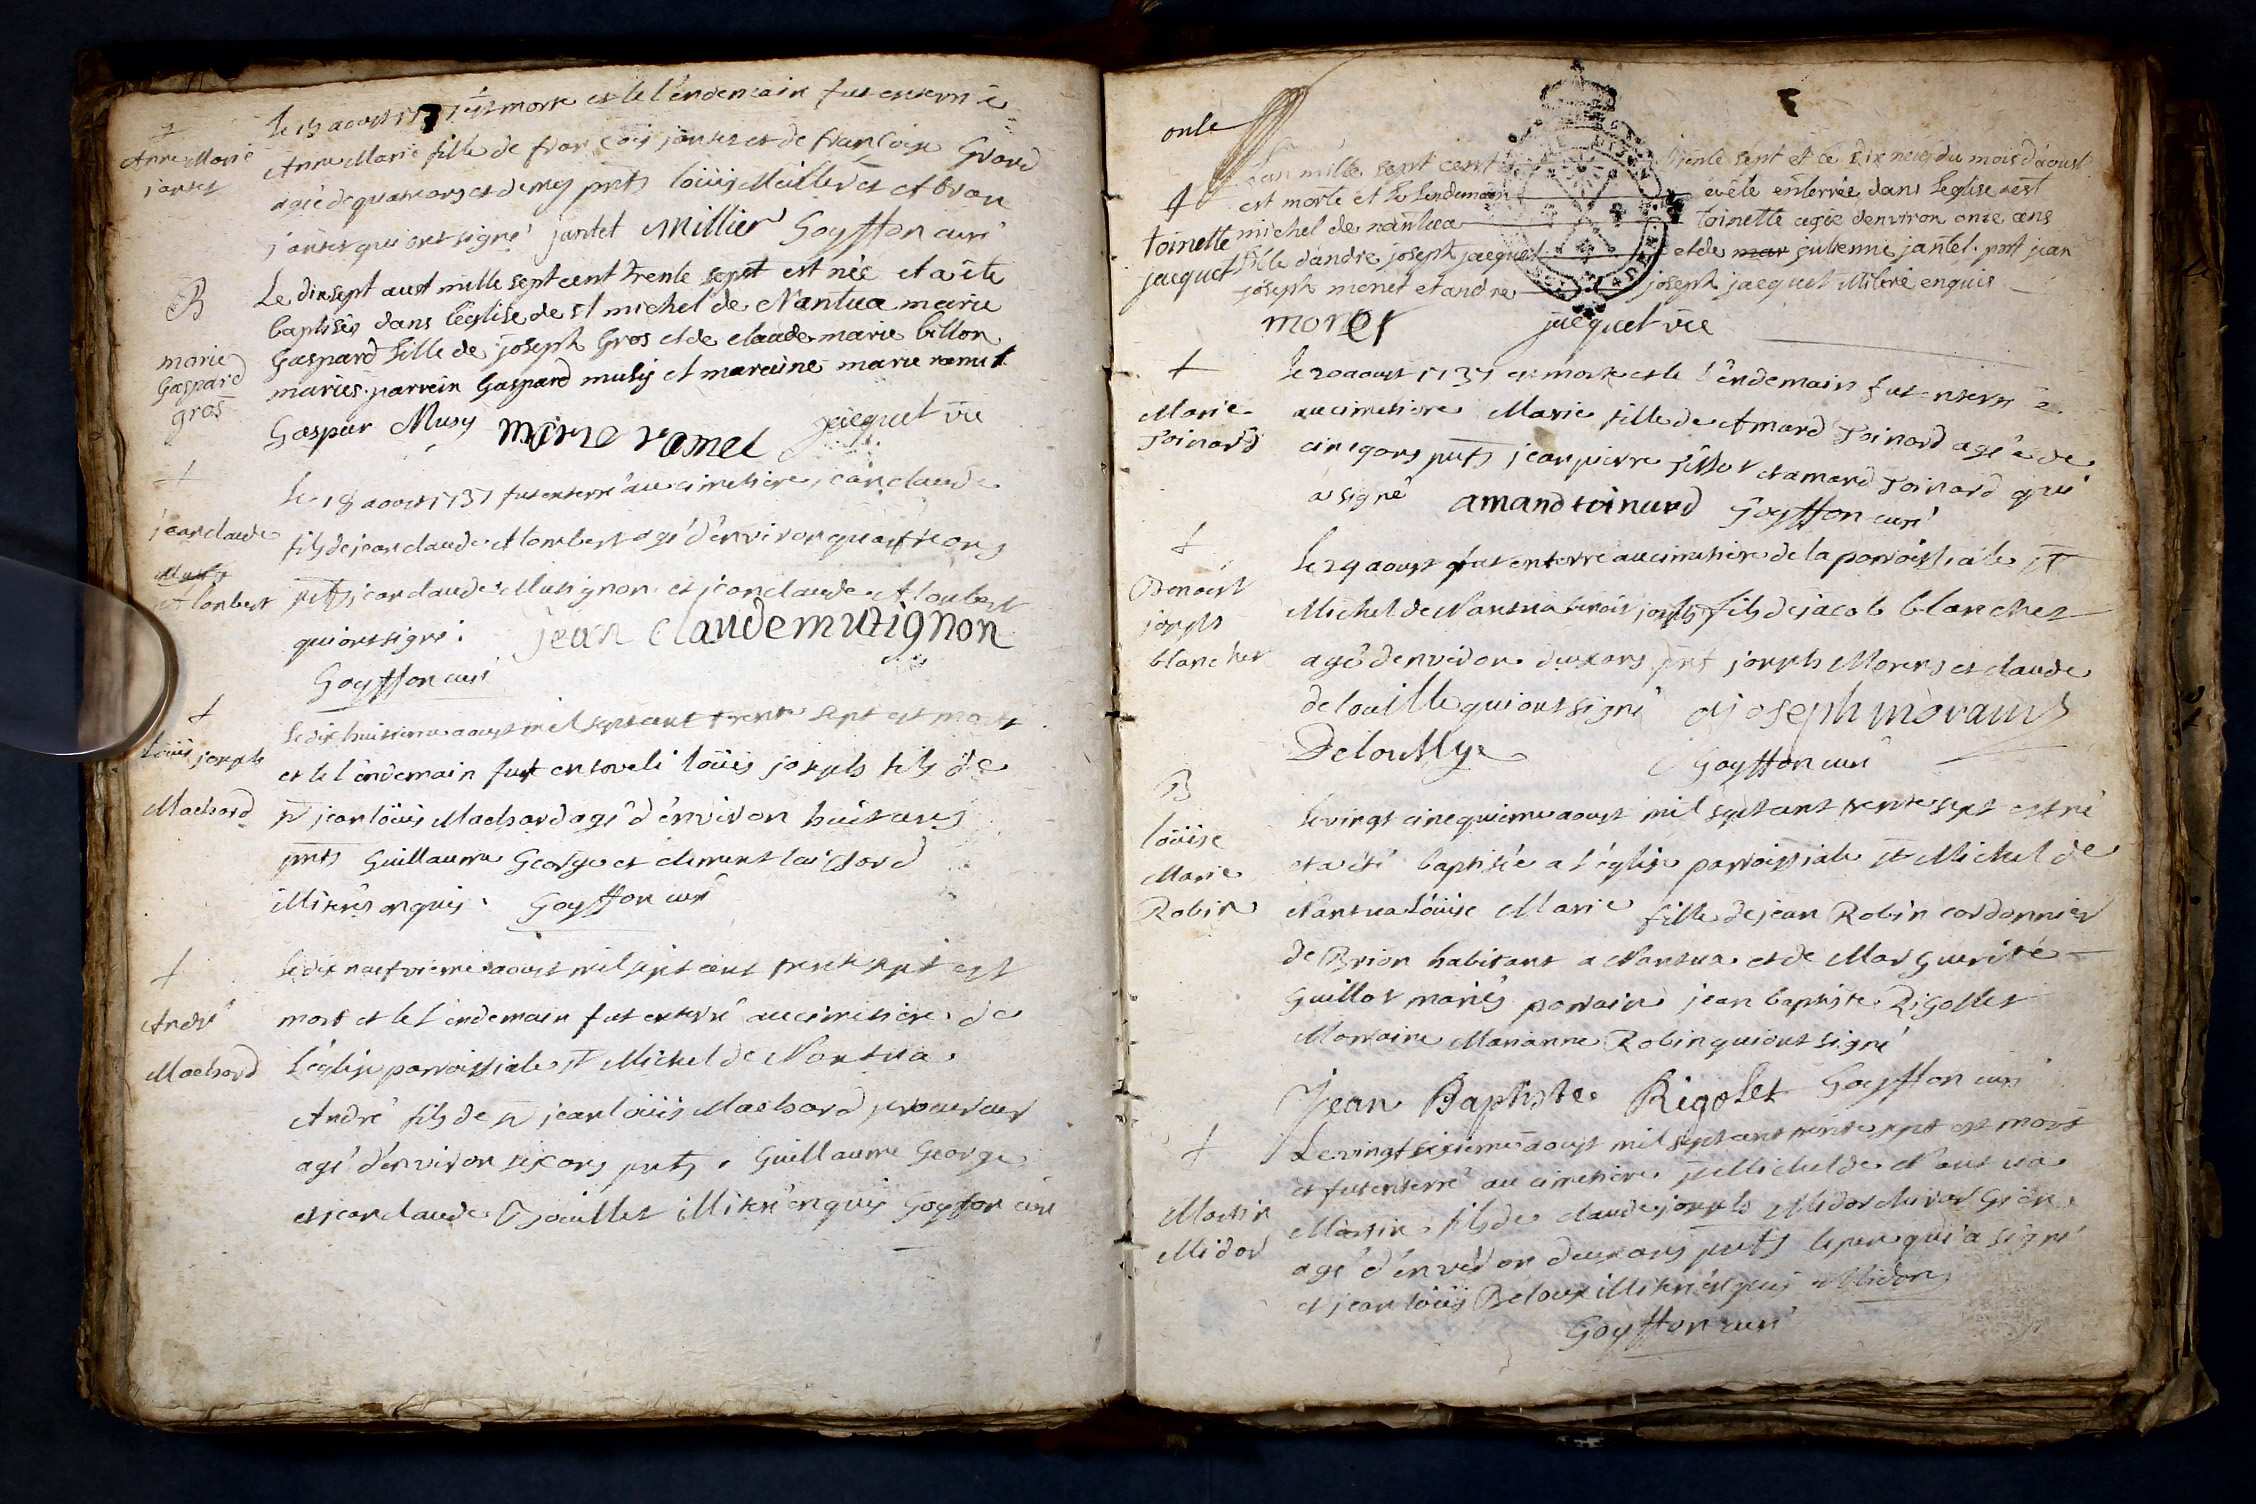 Anne Marie
jantet
Le 15 aoust 1737 est morte et le l'endemain fut enterré é
Anne Marie fille de françois jantet et de françoise Grand
agée de quatre ans et demy pnts loüis Meillier et Abran
jantet qui ont signé jantet Millier Goyffon curé
B
marie
Gaspard
gros
Le dix sept aust mille sept cent trente sept est née et a ête
baptisée dans l'église de st michel de Nantua marie
Gaspard fille de joseph Gros et de claude marie billon
mariés. parrein Gaspard musy et mareine marie ramet
Gaspar Musy marie ramel jacquet vic
+
jean claude
Alombert
Le 18 aoust 1737 fut enterré au cimetiere jean claude
fils de jean claude Alombert agé d'environ quattre ans
pnts jean claude Mutignon et jean claude Alombert
qui ont signé. jean claude mutignon
Goyffon curé
+
Loüis joseph
Machard
Le dix huitieme aoust mil sept cent trente sept est mort
et le l'endemain fut enseveli loüis joseph fils de
Sr jean loüis Machard agé d'environ huit ans
pnts Guillaume George et clement
illiterés enquis. Goyffon curé
+
André
Machard
Le dix neufvieme aoust mil sept cent trente sept est
mort et le l'endemain fut enterré au cimetiere de
l'eglise parroissiale St Michel de Nantua
André fils de Sr jean loüis Machard procureur
agé d'environ six ans pnts. Guillaume George
et jean claude illiteré enquis Goyffon curé
onze
+
toinette
jacquet
L'an mille sept cent trente sept et le dix neuf du mois d'aoust
est morte et le lendemain a ête enterrée dans l'eglise de st
michel de nantua toinette agée denviron onze ans
fille dandré joseph jacquet et de mar julienne jantet. pnt jean
joseph monet et andre joseph jacquet illitere enquis
monet jacquet vic
+
Marie
Toinard
Le 20 aoust 1737 est morte et le l'endemain fut enterré é
au cimetiere Marie fille de Amard Toinard agée de
cinq ans pnts jean pierre et amard Toinard qui
a signé amand toinard Goyffon curé
+
Benoist
joseph
blanchet
Le 24 aoust fut enterré au cimetiere de la parroissiale St
Michel de Nantua benoit joseph fils de jacob blanchet
agé d'environ deux ans pnt joseph Morens et claude
delouille qui ont signé joseph moraind
Delouillye Goyffon curé
B
loüise
Marie
Robin
Le vingt cinquieme aoust mil sept cent trente sept est né
et a été baptisée a l'église parroissiale St Michel de
Nantua loüise Marie fille de jean Robin cordonnier
de Brion habitant a Nantua et de Marguerite
Guillot mariés parrain jean baptiste Rigollet
Marraine Marianne Robin qui ont signé
Jean Baptiste Rigolet Goyffon curé
+
Martin
Midor
Le vingt sixieme aoust mil sept cent trente sept est mort
et fut enterré au cimetiere St Michel de Nantua
Martin fils de claude joseph Midor
agé d'environ deux ans pnts le pere qui a signé
et jean loüis illiteré enquis Midor
Goyffon curé